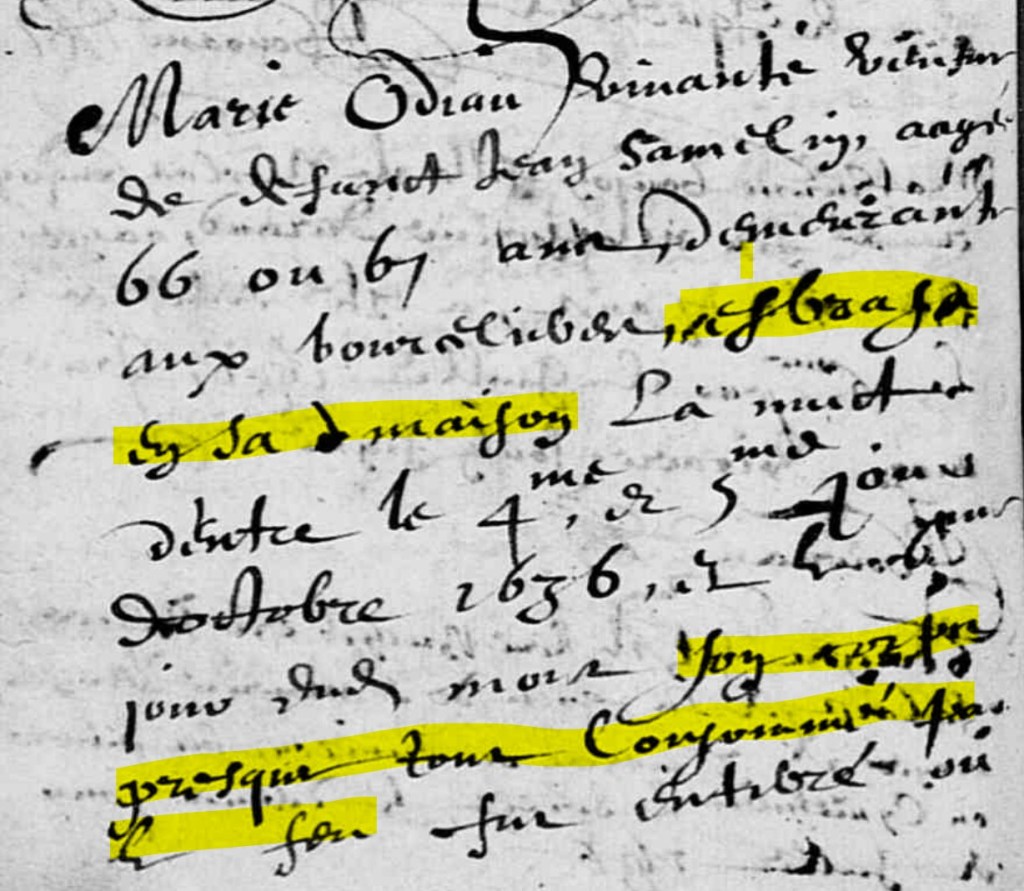 Marie Odiau vivante veufve
de defunct Jean Samelin, aagé
66 ou 67 ans, demeurante
aux bourcelieres, est brasée
en sa maison La nuict
dentre le 4 me, et 5 me jour
doctobre 1636, et le
jour dud mois son corps
presque tout consommé par
le feu fut enterré ou